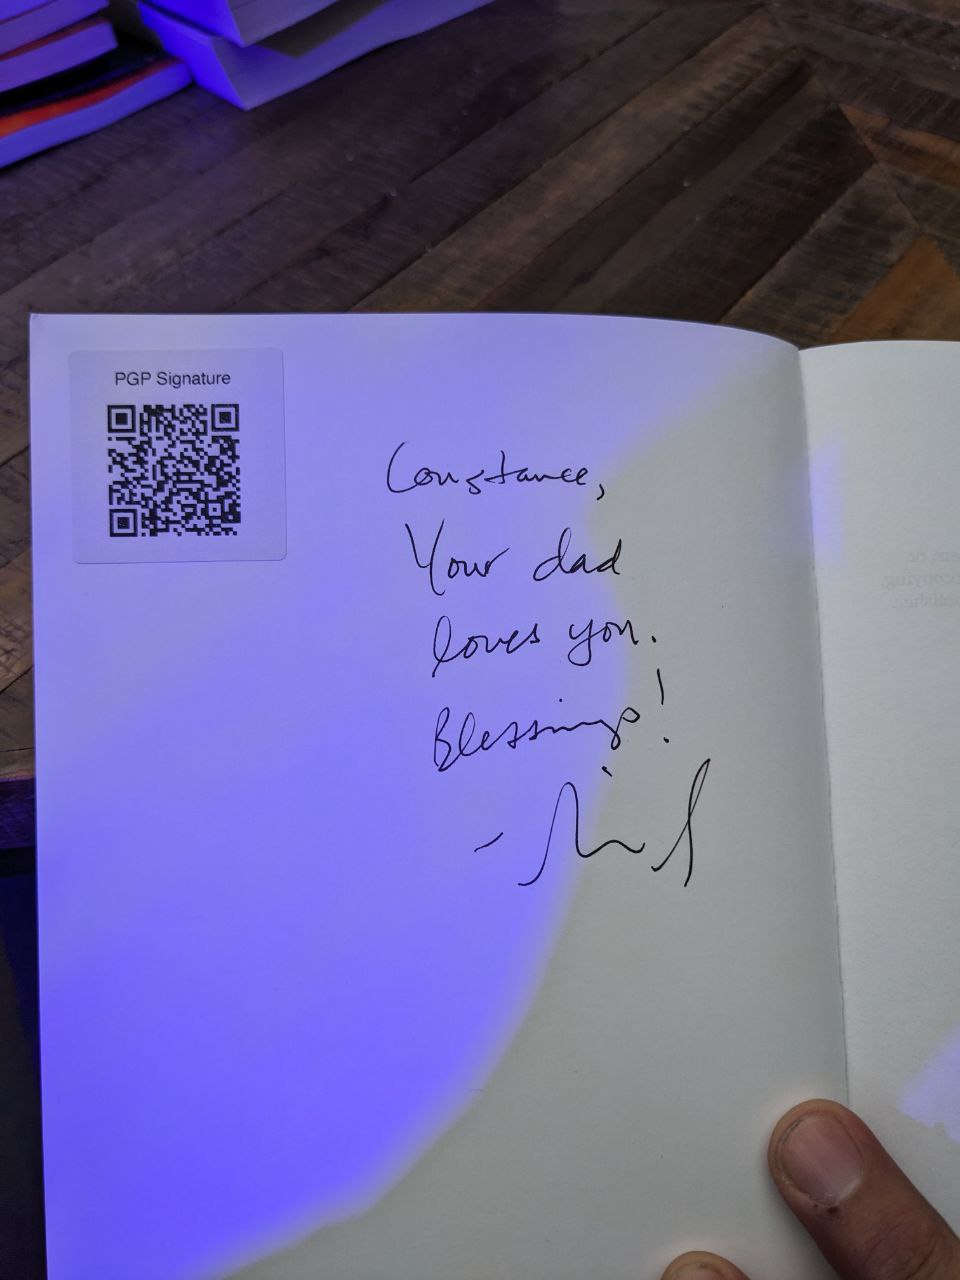 PGP Signature
Constance,
Your dad
loves you.
Blessings!